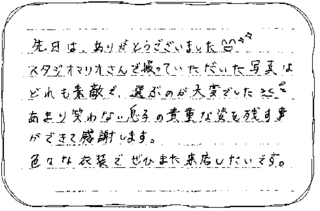 先日は、ありがとうございました
スタジオマリオさんで撮っていただいた写真は
どれも素敵で、選ぶのが大変でした
あまり笑わない息子の貴重な姿を残す事
ができて感謝します。
色々な衣装でぜひまた来店したいです。